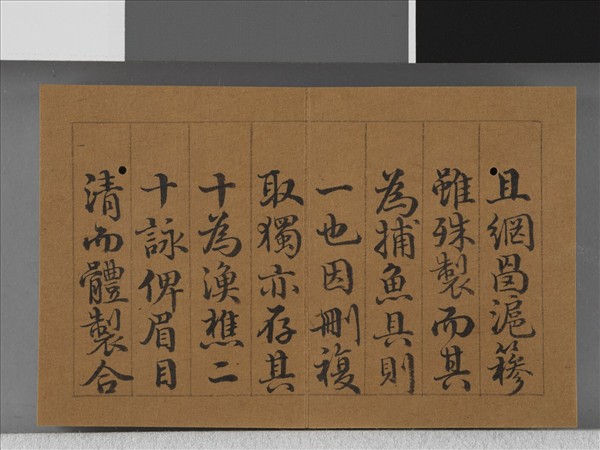 且網滬
雖殊製而其
為捕魚具則
一也因刪複
取獨亦存其
十為漁樵二
十詠俾眉目
清而體製合